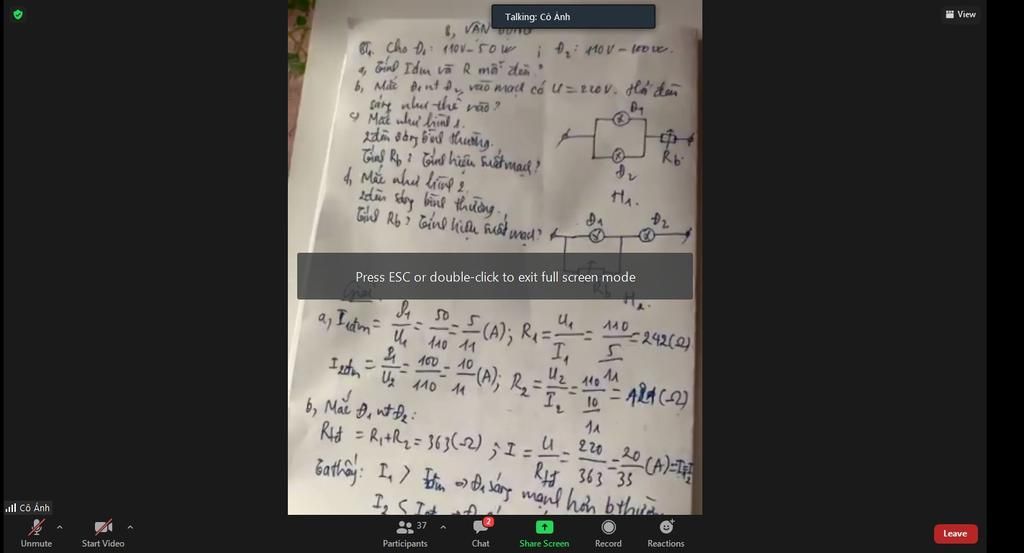 Talking: Cô Ánh
View
B, VẬN DỤNG
Cho Đ1: 110V-50W ; Đ2: 110V-100W.
a, Tính Iđm và R mỗi đèn?
b, Mắc Đ1 nt Đ2 vào mạch có U = 220V. Hỏi đèn
sáng như thế nào?
c, Mắc như hình 1.
2 đèn sáng bình thường.
Tính Rb? Tính hiệu suất mạch?
d, Mắc như hình 2.
2 đèn sáng bình thường.
Tính Rb? Tính hiệu suất mạch?
Đ1
Rb
Đ2
H1.
Đ1 Đ2
Rb
H2.
Press ESC or double-click to exit full screen mode
Giải
a, I1đm = P1/U1 = 50/110 = 5/11 (A); R1 = U1/I1 = 110/(5/11) = 242(Ω)
I2đm = P1/U2 = 100/110 = 10/11 (A); R2 = U2/I2 = 110/(10/11) = 121(Ω)
b, Mắc Đ1 nt Đ2:
Rtđ = R1+R2 = 363(Ω) ; I = U/Rtđ = 220/363 = 20/33 (A) = I1=I2
Ta thấy: I1 > Iđm => Đ1 sáng mạnh hơn b thường
I2 <
Cô Ánh
Unmute
Start Video
37
Participants
2
Chat
Share Screen
Record
Reactions
Leave